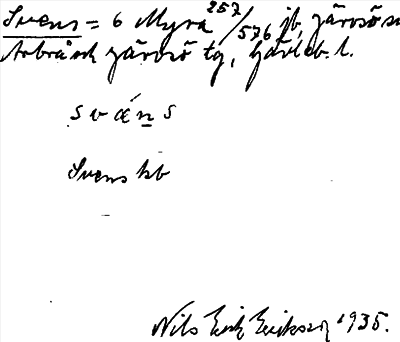 Svens = 6 Myra 257/576 jb, Järvsö sn
Arbrå och Järvsö tg, Gävleb. l.
svæ´n̲s
Svens kb
Nils Erik Eriksson 1935.